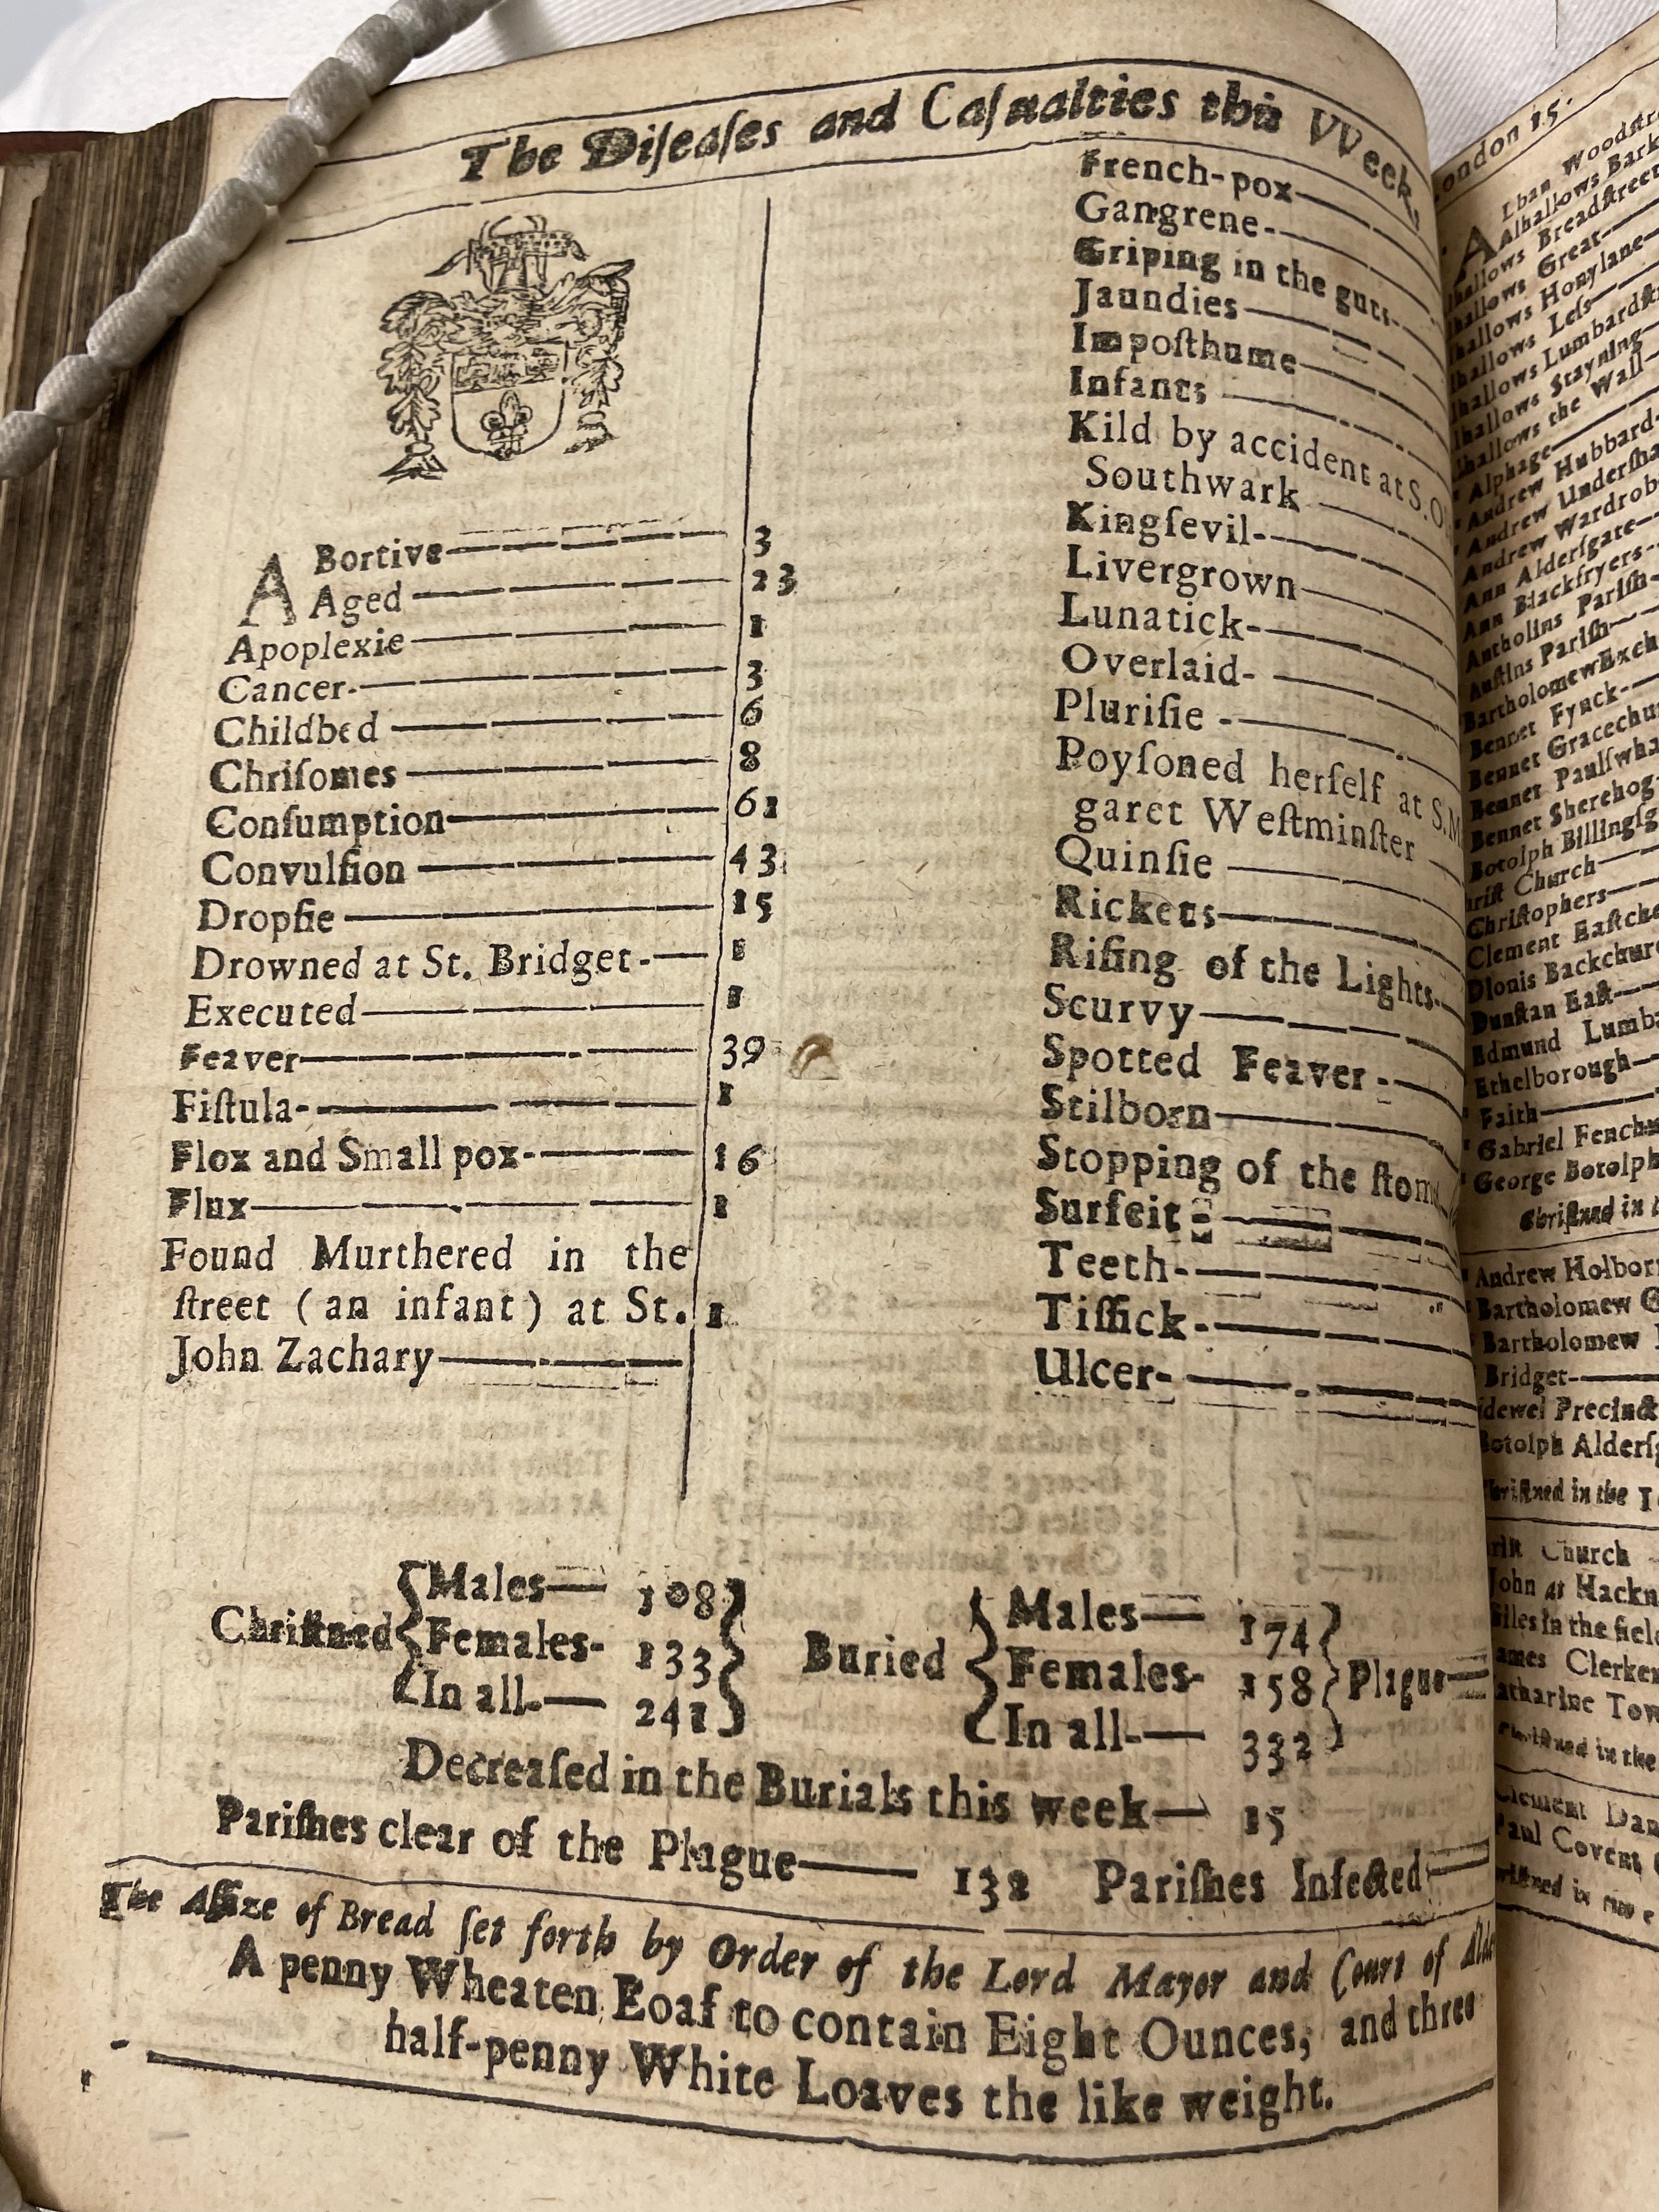 The Diſeaſes and Caſualties this VVeek,
ABortive 3
Aged 23
Apoplexie 1
Cancer 3
Childbed 6
Chriſomes 8
Conſumption 61
Convulſion 43
Dropſie 15
Drowned at St. Bridget 1
Executed 1
Feaver 39
Fiſtula 1
Flox and Small pox 16
Flux 1
Found Murthered in the
ſtreet (an infant) at St. 1
John Zachary
French-pox
Gangrene
Griping in the guts
Jaundies
Impoſthume
Infants
Kild by accident at S.
Southwark
Kingſevil
Livergrown
Lunatick
Overlaid
Pluriſie
Poyſoned herſelf at S.
garet Weſtminſter
Quinſie
Rickets
Riſing of the Lights
Scurvy
Spotted Feaver
Stilborn
Stopping of the
Surfeit
Teeth
Tiſſick
Ulcer
Chriſtned
Males 108
Females 133
In all 241
Buried
Males 174
Females 158
In all 332
Plague
Decreaſed in the Burials this week 15
Pariſhes clear of the Plague 132 Pariſhes Infected
The Aſſize of Bread ſet forth by Order of the Lord Mayor and Court of
A penny Wheaten Loaf to contain Eight Ounces, and three
half-penny White Loaves the like weight.
15.
Lban
Alhallows
Breadſtreet
Great
Honylane
Leſs
Lumbardſt
Stayning
the Wall
Alphage
Andrew Hubbard
Andrew
Andrew Wardrob
Ann Alderſgate
Ann Blackfryers
Antholins Pariſh
Auſtins Pariſh
Bartholomew Exch
Bennet Fynck
Bennet Gracechu
Bennet Paulſwha
Bennet Sherehog
Botolph Billingſg
Church
Chriſtophers
Clement Eaſtche
Dionis Backchur
Dunſtan Eaſt
Edmund Lumb
Ethelborough
Faith
Gabriel Fenchu
George Botolph
Chriſtned in
Andrew Holbor
Bartholomew G
Bartholomew
Bridget
Precinct
Botolph Alderſg
in the 1
Church
John at Hackn
Giles in the field
Clerken
Katharine Tow
in the
Clement Dan
Paul Covent
in